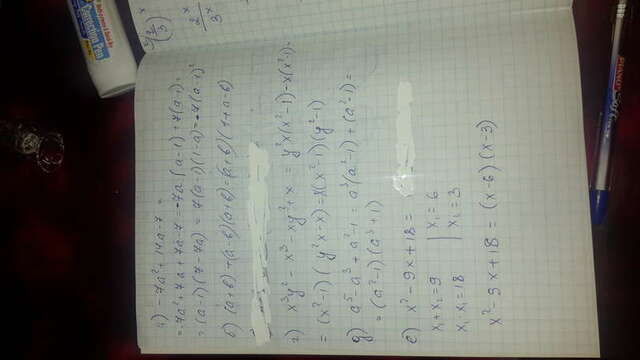 а) -7a²+14a-7=
= -7a²+7a+7a-7 = -7a(a-1)+7(a-1)=
= (a-1)(7-7a) = 7(a-1)(1-a) = -7(a-1)²
б) (a+b)+(a-b)(a+b)=(a+b)(1+a-b)
г) x³y²-x³-xy²+x = y²x(x²-1)-x(x²-1)=
= (x²-1)(y²x-x)=x(x²-1)(y²-1)
д) a⁵-a³+a²-1= a³(a²-1)+(a²-1)=
= (a²-1)(a³+1)
е) x²-9x+18=
x₁+x₂=9 | x₁=6
x₁ x₂=18 | x₂=3
x²-9x+18 = (x-6)(x-3)